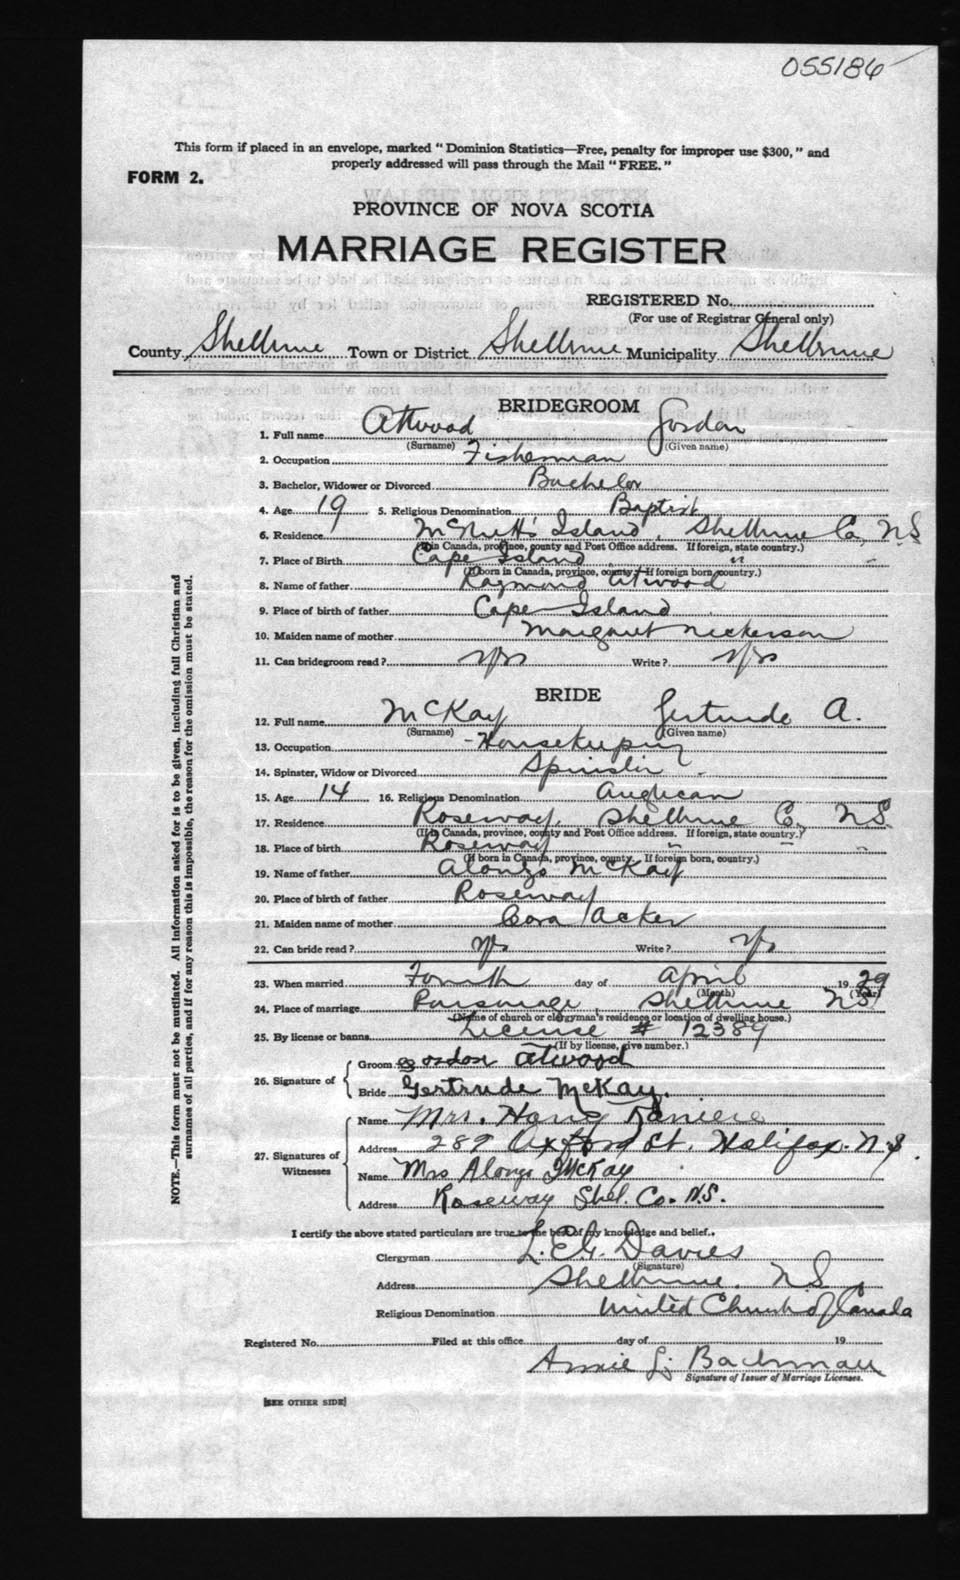 055186
This form if placed in an envelope, marked "Dominion Statistics—Free, penalty for improper use $300," and
properly addressed will pass through the Mail "FREE."
FORM 2.
PROVINCE OF NOVA SCOTIA
MARRIAGE REGISTER
REGISTERED No.
(For use of Registrar General only)
County Shelburne Town or District Shelburne Municipality Shelburne
BRIDEGROOM
1. Full name Atwood Gordon
(Surname) (Given name)
2. Occupation Fisherman
3. Bachelor, Widower or Divorced Bachelor
4. Age 19 5. Religious Denomination Baptist
6. Residence McNutt's Island, Shelburne Co, NS
(If in Canada, province, county and Post Office address. If foreign, state country.)
7. Place of Birth Cape Island " "
(If born in Canada, province, county. If foreign born, country.)
8. Name of father Raymond Atwood
9. Place of birth of father Cape Island
10. Maiden name of mother Margaret Nickerson
11. Can bridegroom read? yes Write? yes
BRIDE
12. Full name McKay Gertrude A.
(Surname) (Given name)
13. Occupation Housekeeping
14. Spinster, Widow or Divorced Spinster
15. Age 14 16. Religious Denomination Anglican
17. Residence Roseway, Shelburne Co, NS.
(If in Canada, province, county and Post Office address. If foreign, state country.)
18. Place of birth Roseway " "
(If born in Canada, province, county. If foreign born, country.)
19. Name of father Alonzo McKay
20. Place of birth of father Roseway
21. Maiden name of mother Cora Acker
22. Can bride read? yes Write? yes
23. When married Fourth day of April 19 29
(Month) (Year)
24. Place of marriage Parsonage, Shelburne NS
(Name of church or clergyman's residence or location of dwelling house.)
25. By license or banns License # 12389
(If by license, give number.)
26. Signature of
Groom Gordon Atwood
Bride Gertrude McKay.
27. Signatures of Witnesses
Name Mrs.
Address 289 Oxford St. Halifax. N.S.
Name Mrs Alonzo McKay
Address Roseway Shel. Co. N.S.
I certify the above stated particulars are true to the best of my knowledge and belief.
Clergyman Davies
(Signature)
Address Shelburne, NS
Religious Denomination United Church of Canada
Registered No. Filed at this office day of 19
Annie L. Bachman
Signature of Issuer of Marriage Licenses.
[SEE OTHER SIDE]
NOTE.—This form must not be mutilated. All information asked for is to be given, including full Christian and
surnames of all parties, and if for any reason this is impossible, the reason for the omission must be stated.